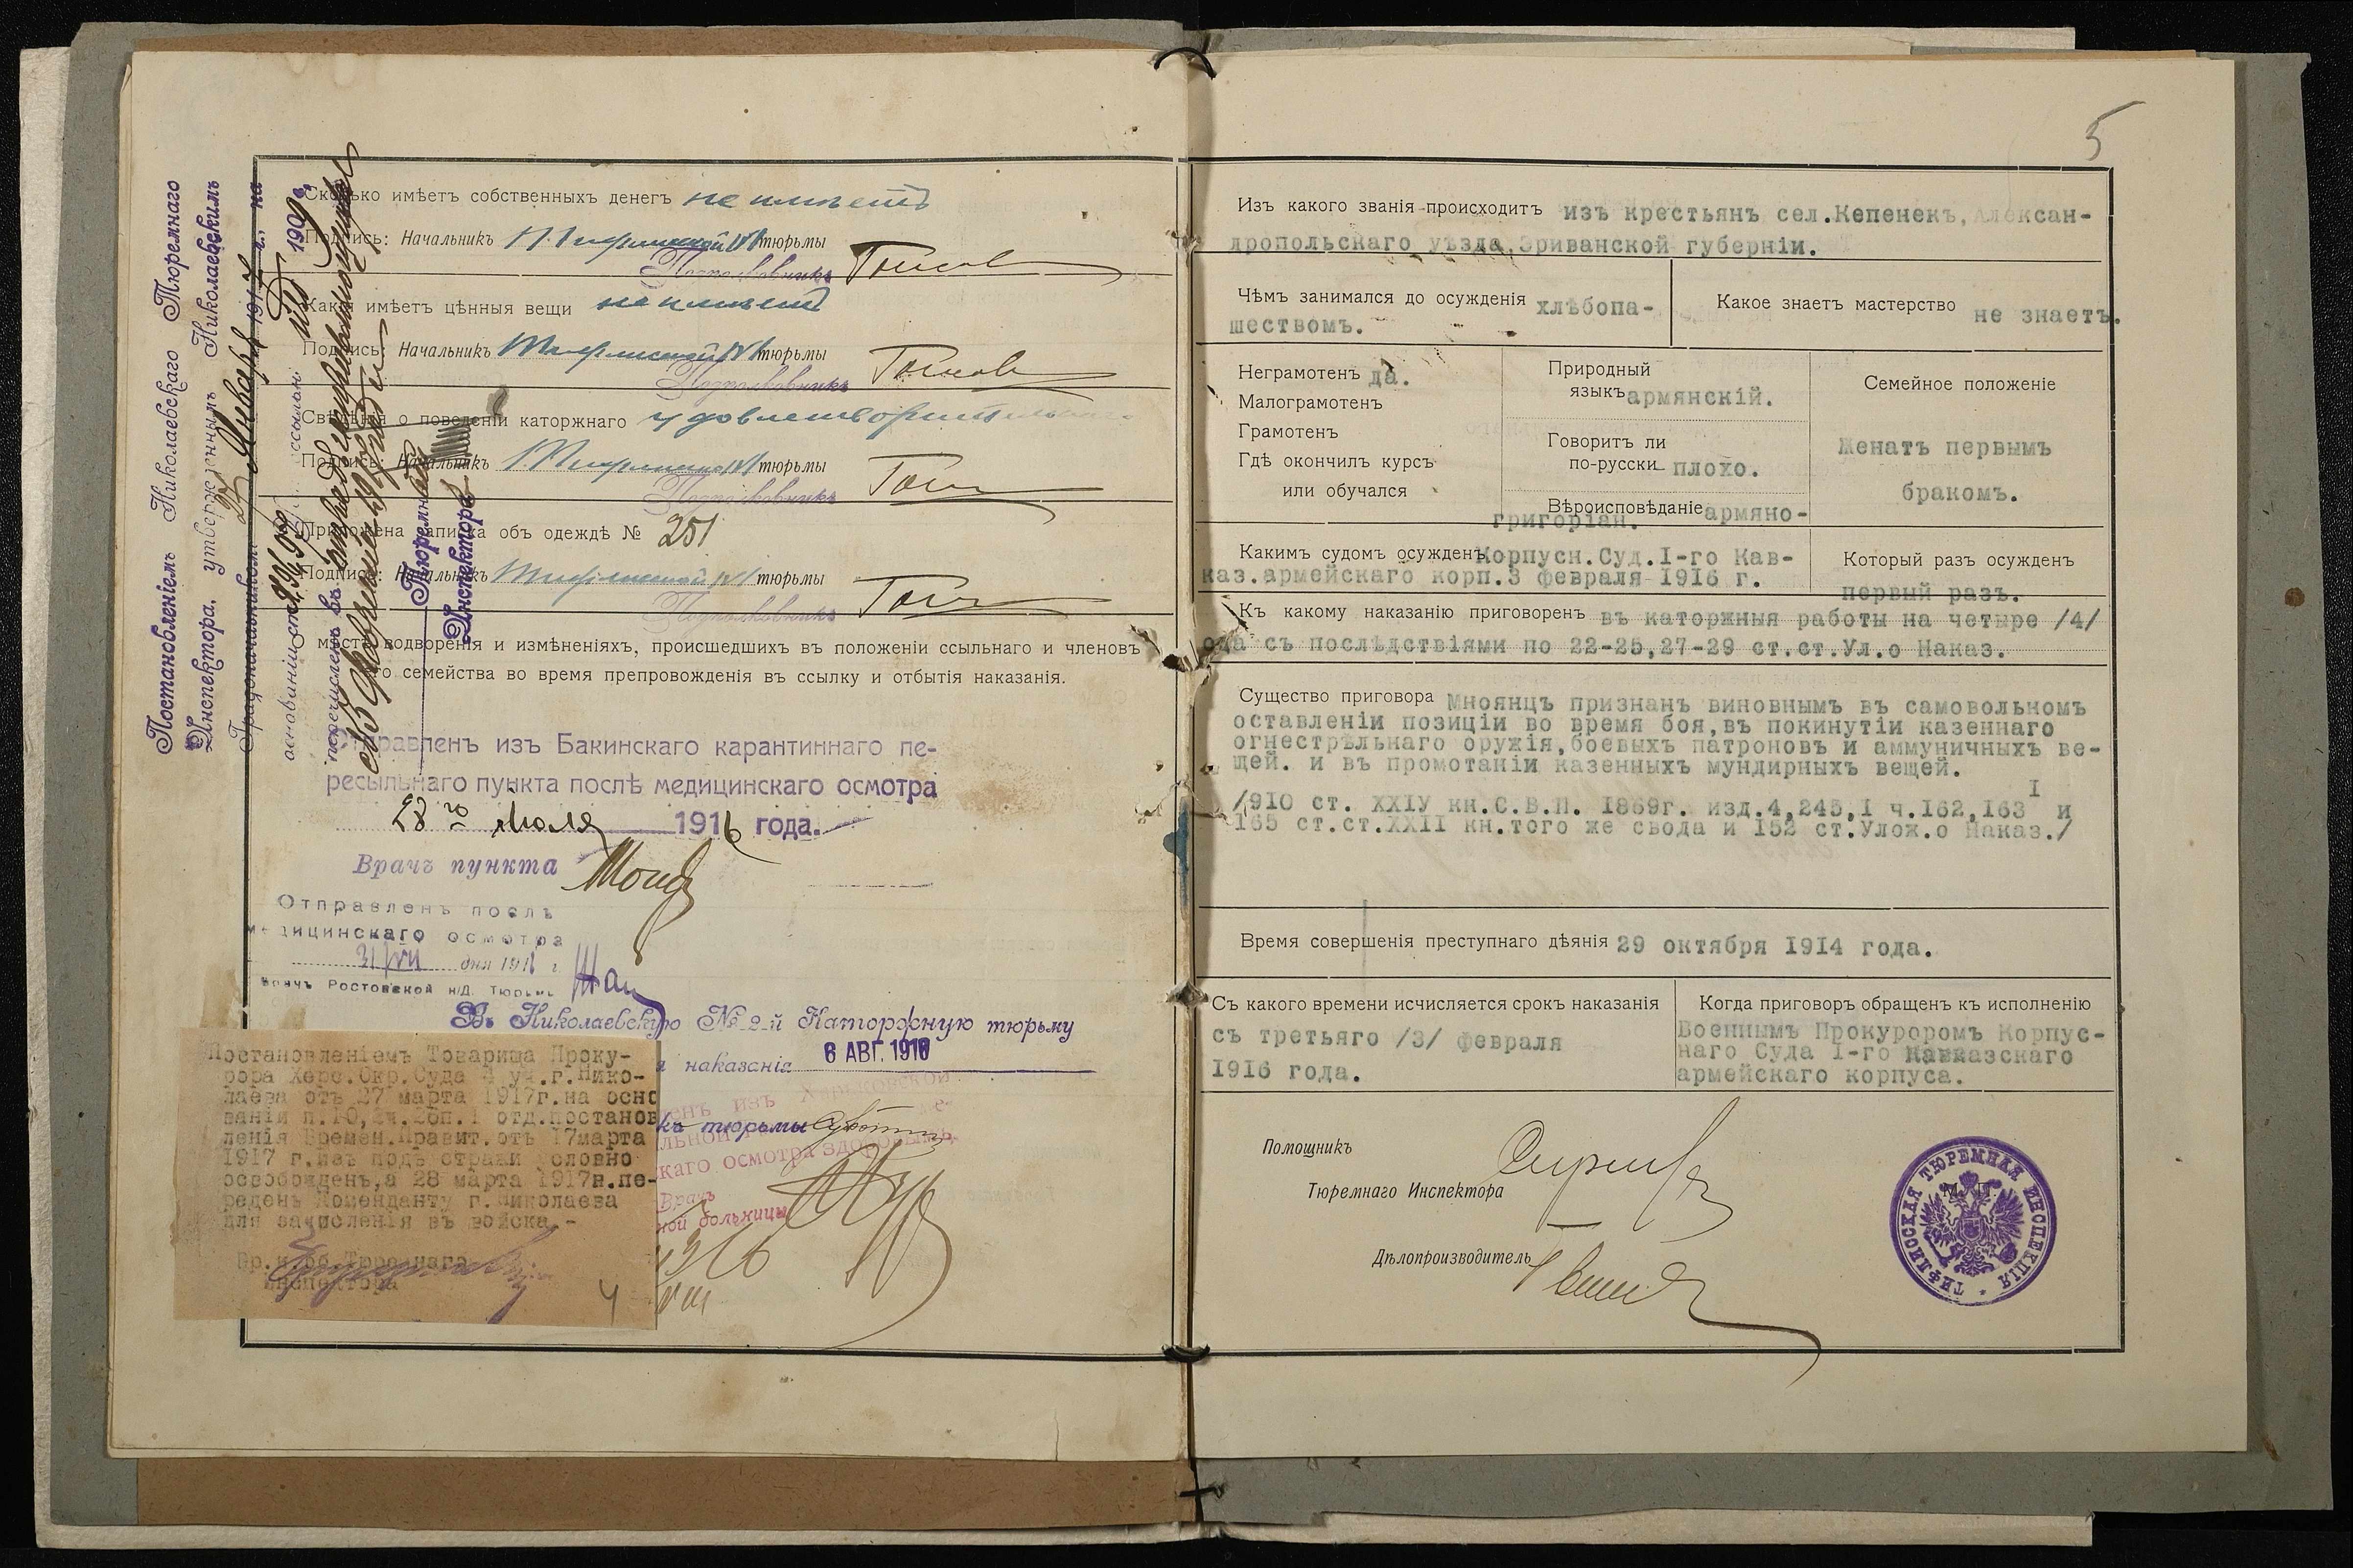 Сколько имѣетъ собственныхъ денегъ не имѣетъ
Подпись: Начальникъ Тифлисской №1 тюрьмы
Подполковникъ
Какія имѣетъ цѣнныя вещи не имѣетъ
Подпись: Начальникъ Тифлисской №1 тюрьмы
Подполковникъ
Свѣдѣнія о поведеніи каторжнаго удовлетворительно
Подпись: Начальникъ Тифлисской №1 тюрьмы
Подполковникъ
Приложена записка объ одеждѣ № 251
Подпись: Начальникъ Тифлисской №1 тюрьмы
Подполковникъ
мѣстѣ водворенія и измѣненіяхъ, происшедшихъ въ положеніи ссыльнаго и членовъ
его семейства во время препровожденія въ ссылку и отбытія наказанія.
Постановленіемъ Николаевскаго Тюремнаго
Инспектора, утвержденнымъ Николаевскимъ
Градоначальникомъ 27 Января 1917 г., на
основаніи ст.
Тюремный
Инспекторъ
Отправленъ изъ Бакинскаго карантиннаго пе-
ресыльнаго пункта послѣ медицинскаго осмотра
28го Іюля 1916 года.
Врачъ пункта
Отправленъ послѣ
медицинскаго осмотра
31/VII дня 1916 г.
Врачъ Ростовской н/Д. Тюрьмы
Въ Николаевскую № 2-й Каторжную тюрьму
я наказанія 6 АВГ. 1916
къ тюрьмы
енъ изъ Харьковской
льной
каго осмотра здоровымъ
Врачъ
ной больницы
1916
VIII
Постановленіемъ Товарища Проку-
рора Херс.Окр.Суда 4 уч.г.Нико-
лаева отъ 27 марта 1917г.на осно
ваніи п.10, 2ч.2бп.1 отд.постанов
ленія Времен.Правит.отъ 17марта
1917 г.изъ подъ стражи условно
освобожденъ,а 28 марта 1917г.пе-
реденъ Коменданту г.Николаева
для зачисленія въ войска.-
Вр.и.об.Тюремнаго
Инспектора
4
5
Изъ какого званія происходитъ изъ крестьянъ сел.Кепенекъ, Алексан-
дропольскаго уѣзда,Эриванской губерніи.
Чѣмъ занимался до осужденія хлѣбопа-
шествомъ.
Какое знаетъ мастерство не знаетъ.
Неграмотенъ да.
Малограмотенъ
Грамотенъ
Гдѣ окончилъ курсъ
или обучался
Природный
языкъ армянскій.
Говоритъ ли
по-русски плохо.
Вѣроисповѣданіе армяно-
григоріан.
Семейное положеніе
Женатъ первымъ
бракомъ.
Какимъ судомъ осужденъ Корпусн.Суд.I-го Кав-
каз.армейскаго корп.3 февраля 1916 г.
Который разъ осужденъ
первый разъ.
Къ какому наказанію приговоренъ въ каторжныя работы на четыре /4/
ода съ послѣдствіями по 22-25,27-29 ст.ст.Ул.о Наказ.
Существо приговора Мноянцъ признанъ виновнымъ въ самовольномъ
оставленіи позиціи во время боя,въ покинутіи казеннаго
огнестрѣльнаго оружія,боевыхъ патроновъ и аммуничныхъ ве-
щей. и въ промотаніи казенныхъ мундирныхъ вещей.
/910 ст. XXIУ кн.С.В.П. 1869г. изд.4,245,I ч.162,163 I и
165 ст.ст.XXII кн.того же свода и 152 ст.Улож.о Наказ./
Время совершенія преступнаго дѣянія 29 октября 1914 года.
Съ какого времени исчисляется срокъ наказанія
съ третьяго /3/ февраля
1916 года.
Когда приговоръ обращенъ къ исполненію
Военнымъ Прокуроромъ Корпус-
наго Суда I-го Кавказскаго
армейскаго корпуса.
Помощникъ
Тюремнаго Инспектора
Дѣлопроизводитель
М. П.
ТИФЛИССКАЯ ТЮРЕМНАЯ ИНСПЕКЦІЯ